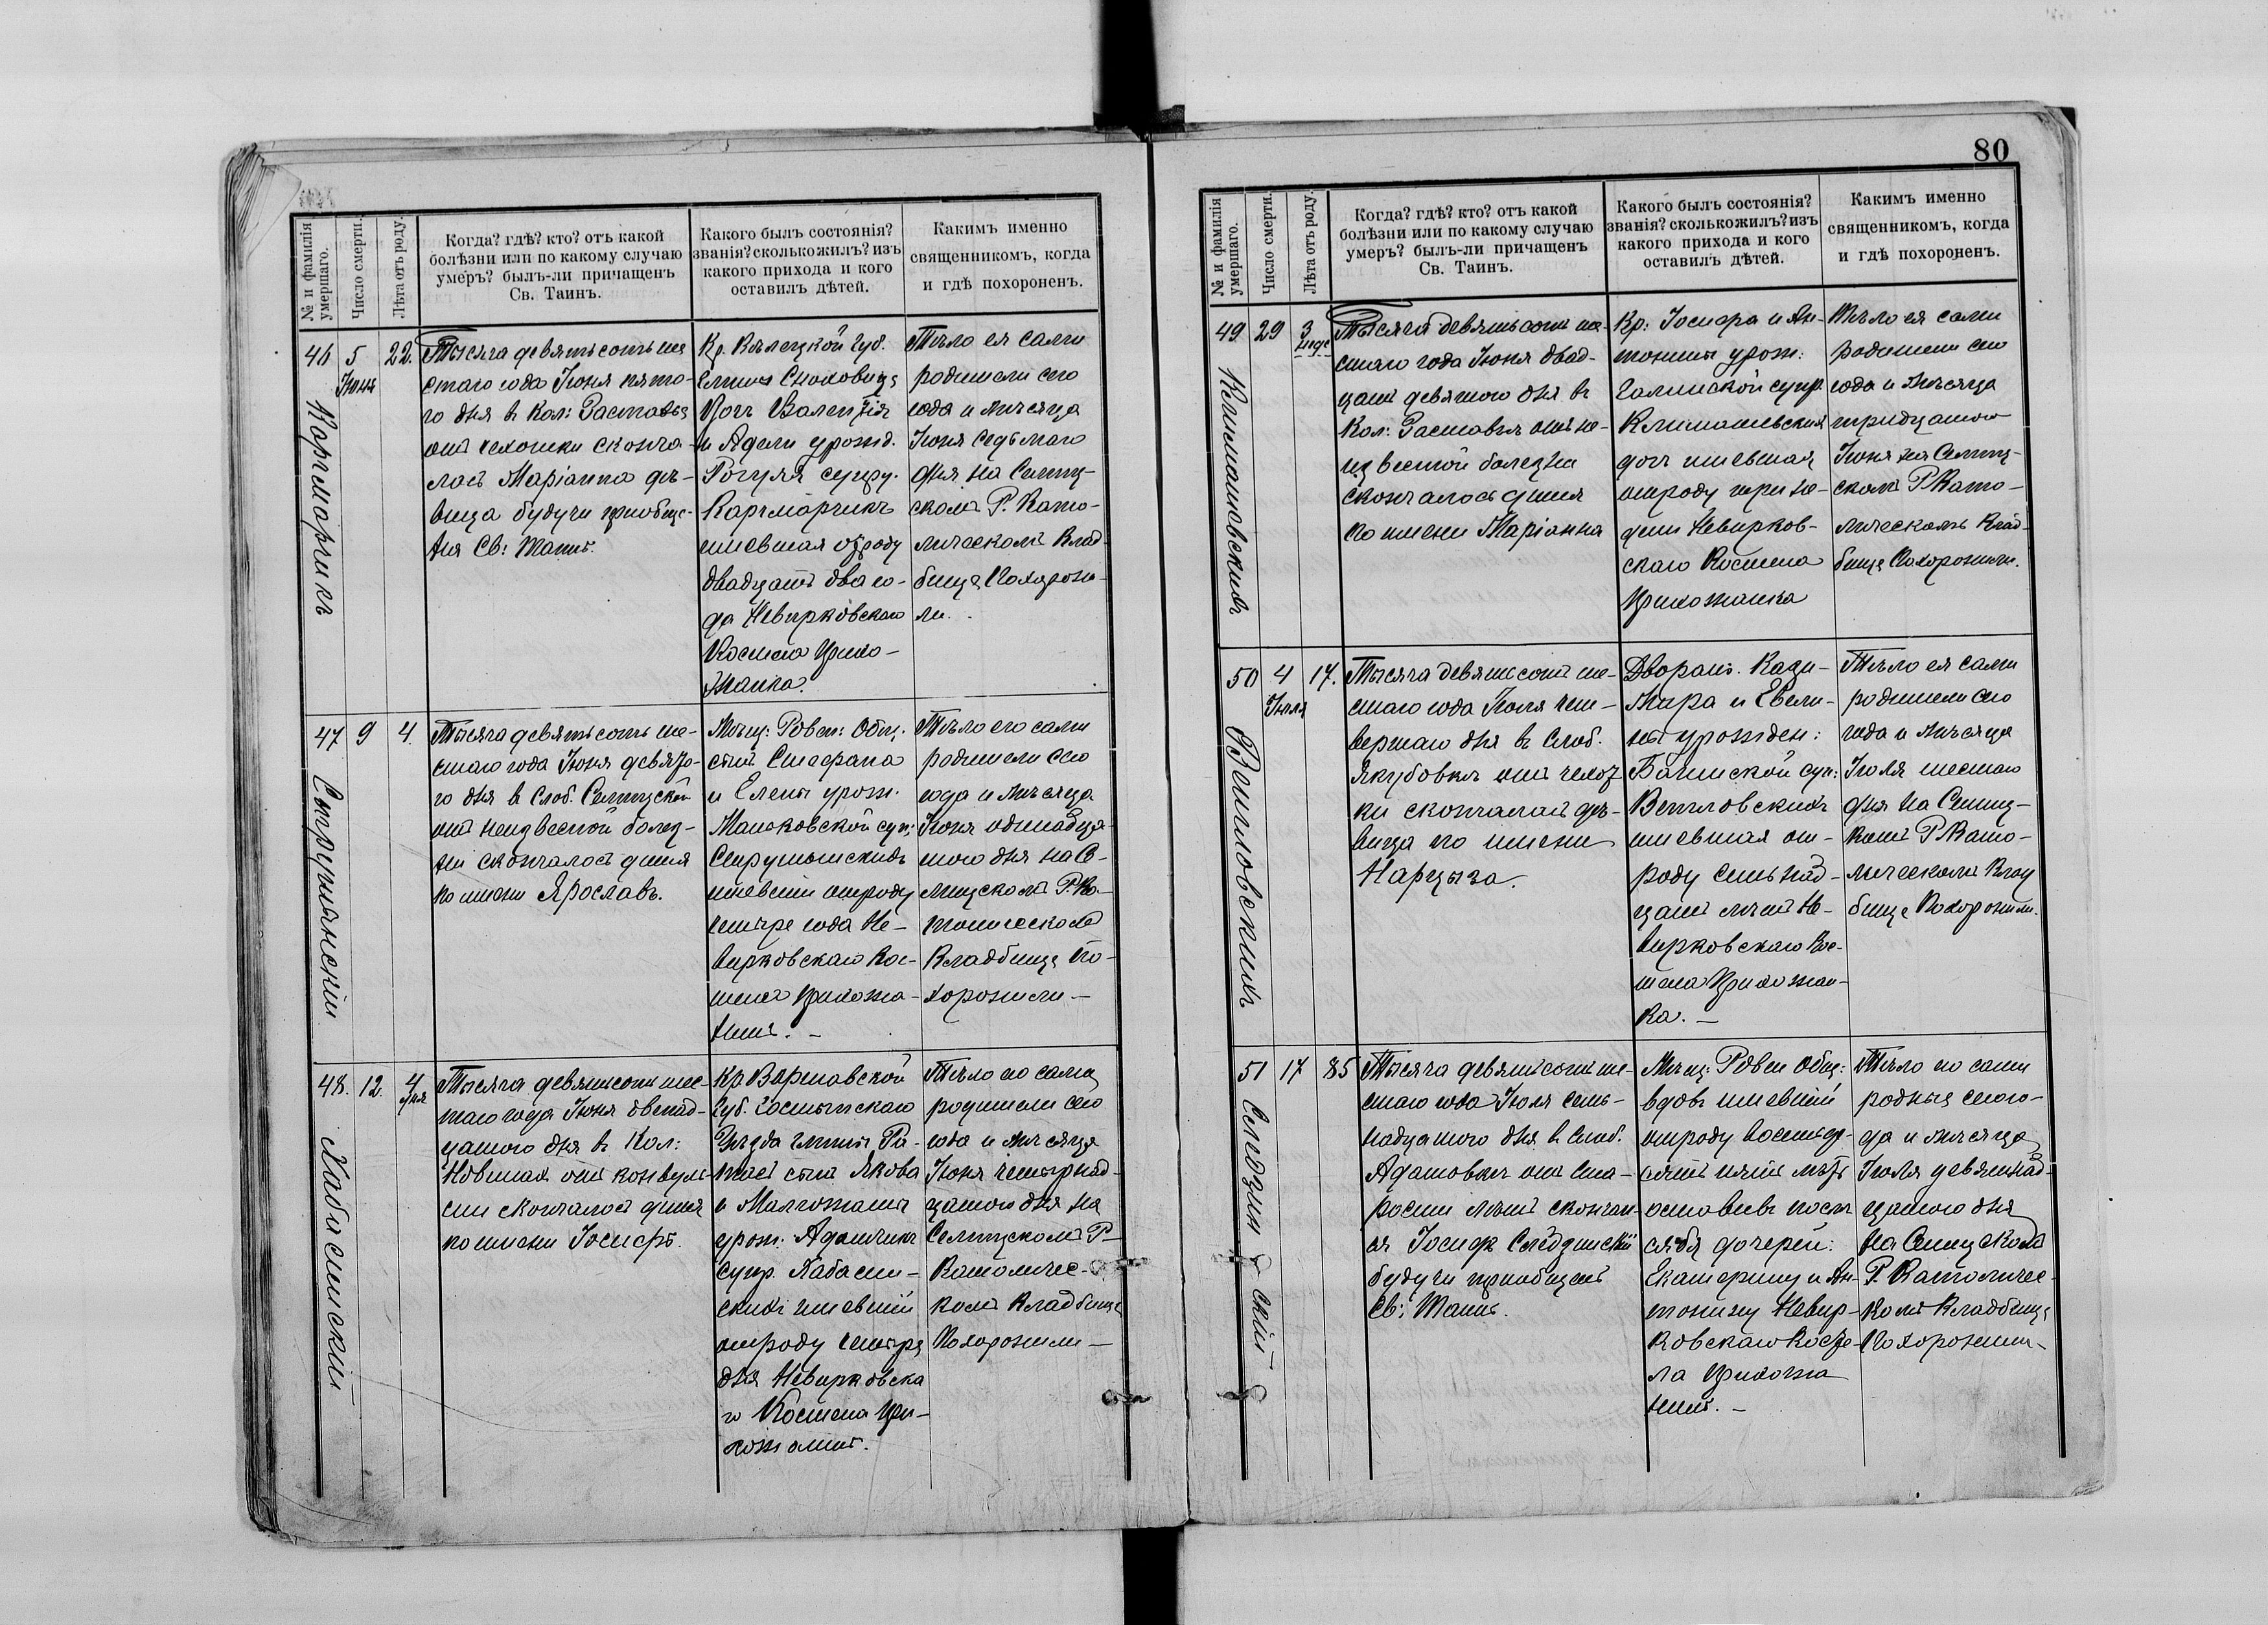 80
№ и фамилія умершаго.
Число смерти.
Лѣта отъ роду.
Когда? гдѣ? кто? отъ какой
болѣзни или по какому случаю
умеръ? былъ-ли причащенъ
Св. Таинъ.
Какого былъ состоянія?
званія? сколько жилъ? изъ
какого прихода и кого
оставилъ дѣтей.
Каким­ъ именно
священникомъ, когда
и гдѣ похороненъ.
46
5
Іюня
22.
Тысяча девятьсотъ ше
стаго года Іюня пято-
го дня в Кол: Заставье
отъ сконча-
лась Маріанна дѣ-
вица будучи приобще-
ня Св: Таинъ.
Кр. Кѣлецкой Губ.
Гмины
дочь
и Адели урожд.
супру.
имевшая отроду
двадцать два го-
да Невирковскаго
Костела Прихо-
жанка.
Тѣло ея сами
родители сего
года и мѣсяца
Іюня седьмаго
дня на Селищ-
скомъ Р. Като-
лическомъ Клад-
бище Похорони-
ли.
47
9
4.
Тысяча девятьсотъ ше-
стаго года Іюня девято-
го дня в Слоб. Селищской
отъ неизвестной болез-
ни скончалось дитя
по имени Ярославъ.
Мѣщ: Ровен: Общ:
сынъ Стефана
и Елены урож.
суп:
имевшій отроду
четыре года Не-
вирковскаго Кос-
тела прихожа-
нинъ. -
Тѣло его сами
родители сего
года и мѣсяца
Іюня одинадца-
того дня на Се-
лищскомъ Р. Ка-
толическомъ
Кладбище По-
хоронили -
48.
12.
4
дня
Хабасинскій
Тысяча девятьсотъ шес-
таго года Іюня двенад-
цатого дня в Кол:
отъ конвуль-
сии скончалось дитя
по имени Іосифъ.
Кр. Варшавской
Губ. Гостынскаго
Уѣзда гмины Ра-
сынъ Якова
и Малгожаты
урож. Адамчикъ
супр. Хабасин-
скихъ имевшій
отроду четыре
дня Невирковска
го Костела При-
хожанинъ.
Тѣло его сами
родители сего
года и мѣсяца
Іюня четырнад-
цатого дня на
Селищскомъ Р-
Католичес-
комъ Кладбище
Похоронили -
№ и фамилія умершаго.
Число смерти.
Лѣта отъ роду.
Когда? гдѣ? кто? отъ какой
болѣзни или по какому случаю
умеръ? былъ-ли причащенъ
Св. Таинъ.
Какого былъ состоянія?
званія? сколько жилъ? изъ
какого прихода и кого
оставилъ дѣтей.
Какимъ именно
священникомъ, когда
и гдѣ похороненъ.
49
29
3
неде
Климашевскихъ
Тысяча девятьсотъ ше-
стаго года Іюня двад-
цать девятого дня в
Кол: Заставье отъ не-
известной болезни
скончалось дитя
по имени Маріанна
Кр: Іосифа и Ан-
тонины урож:
Галинской супр.
Климашевскихъ
дочь имевшая
отроду три не-
дели Невирков-
скаго Костела
Прихожанка
Тѣло ея сами
родители сего
года и мѣсяца
тридцатого
Іюня на Селищ-
скомъ Р Като-
лическомъ Клад-
бище Похоронили.
50
4
Іюля
17.
Витловскихъ
Тысяча девятьсотъ ше-
стаго года Іюля чет-
вертаго дня в Слоб.
Якубовке отъ чехот
ки скончалась дѣ-
вица по имени
Нарцыза.
Дворанъ. Кази-
мира и Евели-
ны урожден:
суп:
Витловскихъ
имевшая от-
роду семьнад-
цать лѣтъ Не-
вирковскаго Кос-
тела Прихожан-
ка. -
Тѣло ея сами
родители сего
года и мѣсяца
Іюля шестаго
дня на Селищ-
комъ Р Като-
лическомъ Клад
бище Похоронили.
51
17
85
Следзин ский
Тысяча девятьсотъ ше-
стаго года Іюля семь-
надцатого дня в Слоб.
Адамовке отъ ста-
рости лѣтъ скончал-
ся Іосифъ Следзинскій
будучи приобщенъ
Св: Таинъ.
Мѣщ: Ровен Общ:
вдовъ имевшій
отроду восемьде-
сятъ пять лѣтъ
оставивъ после
себя дочерей:
Екатерину и Ан-
тонину Невир-
ковскаго Косте-
ла Прихожа
нинъ. -
Тѣло его сами
родные сего го-
да и мѣсяца
Іюля девятнад-
цатого дня
на Селищскомъ
Р. Католичес-
комъ Кладбище
Похоронили -